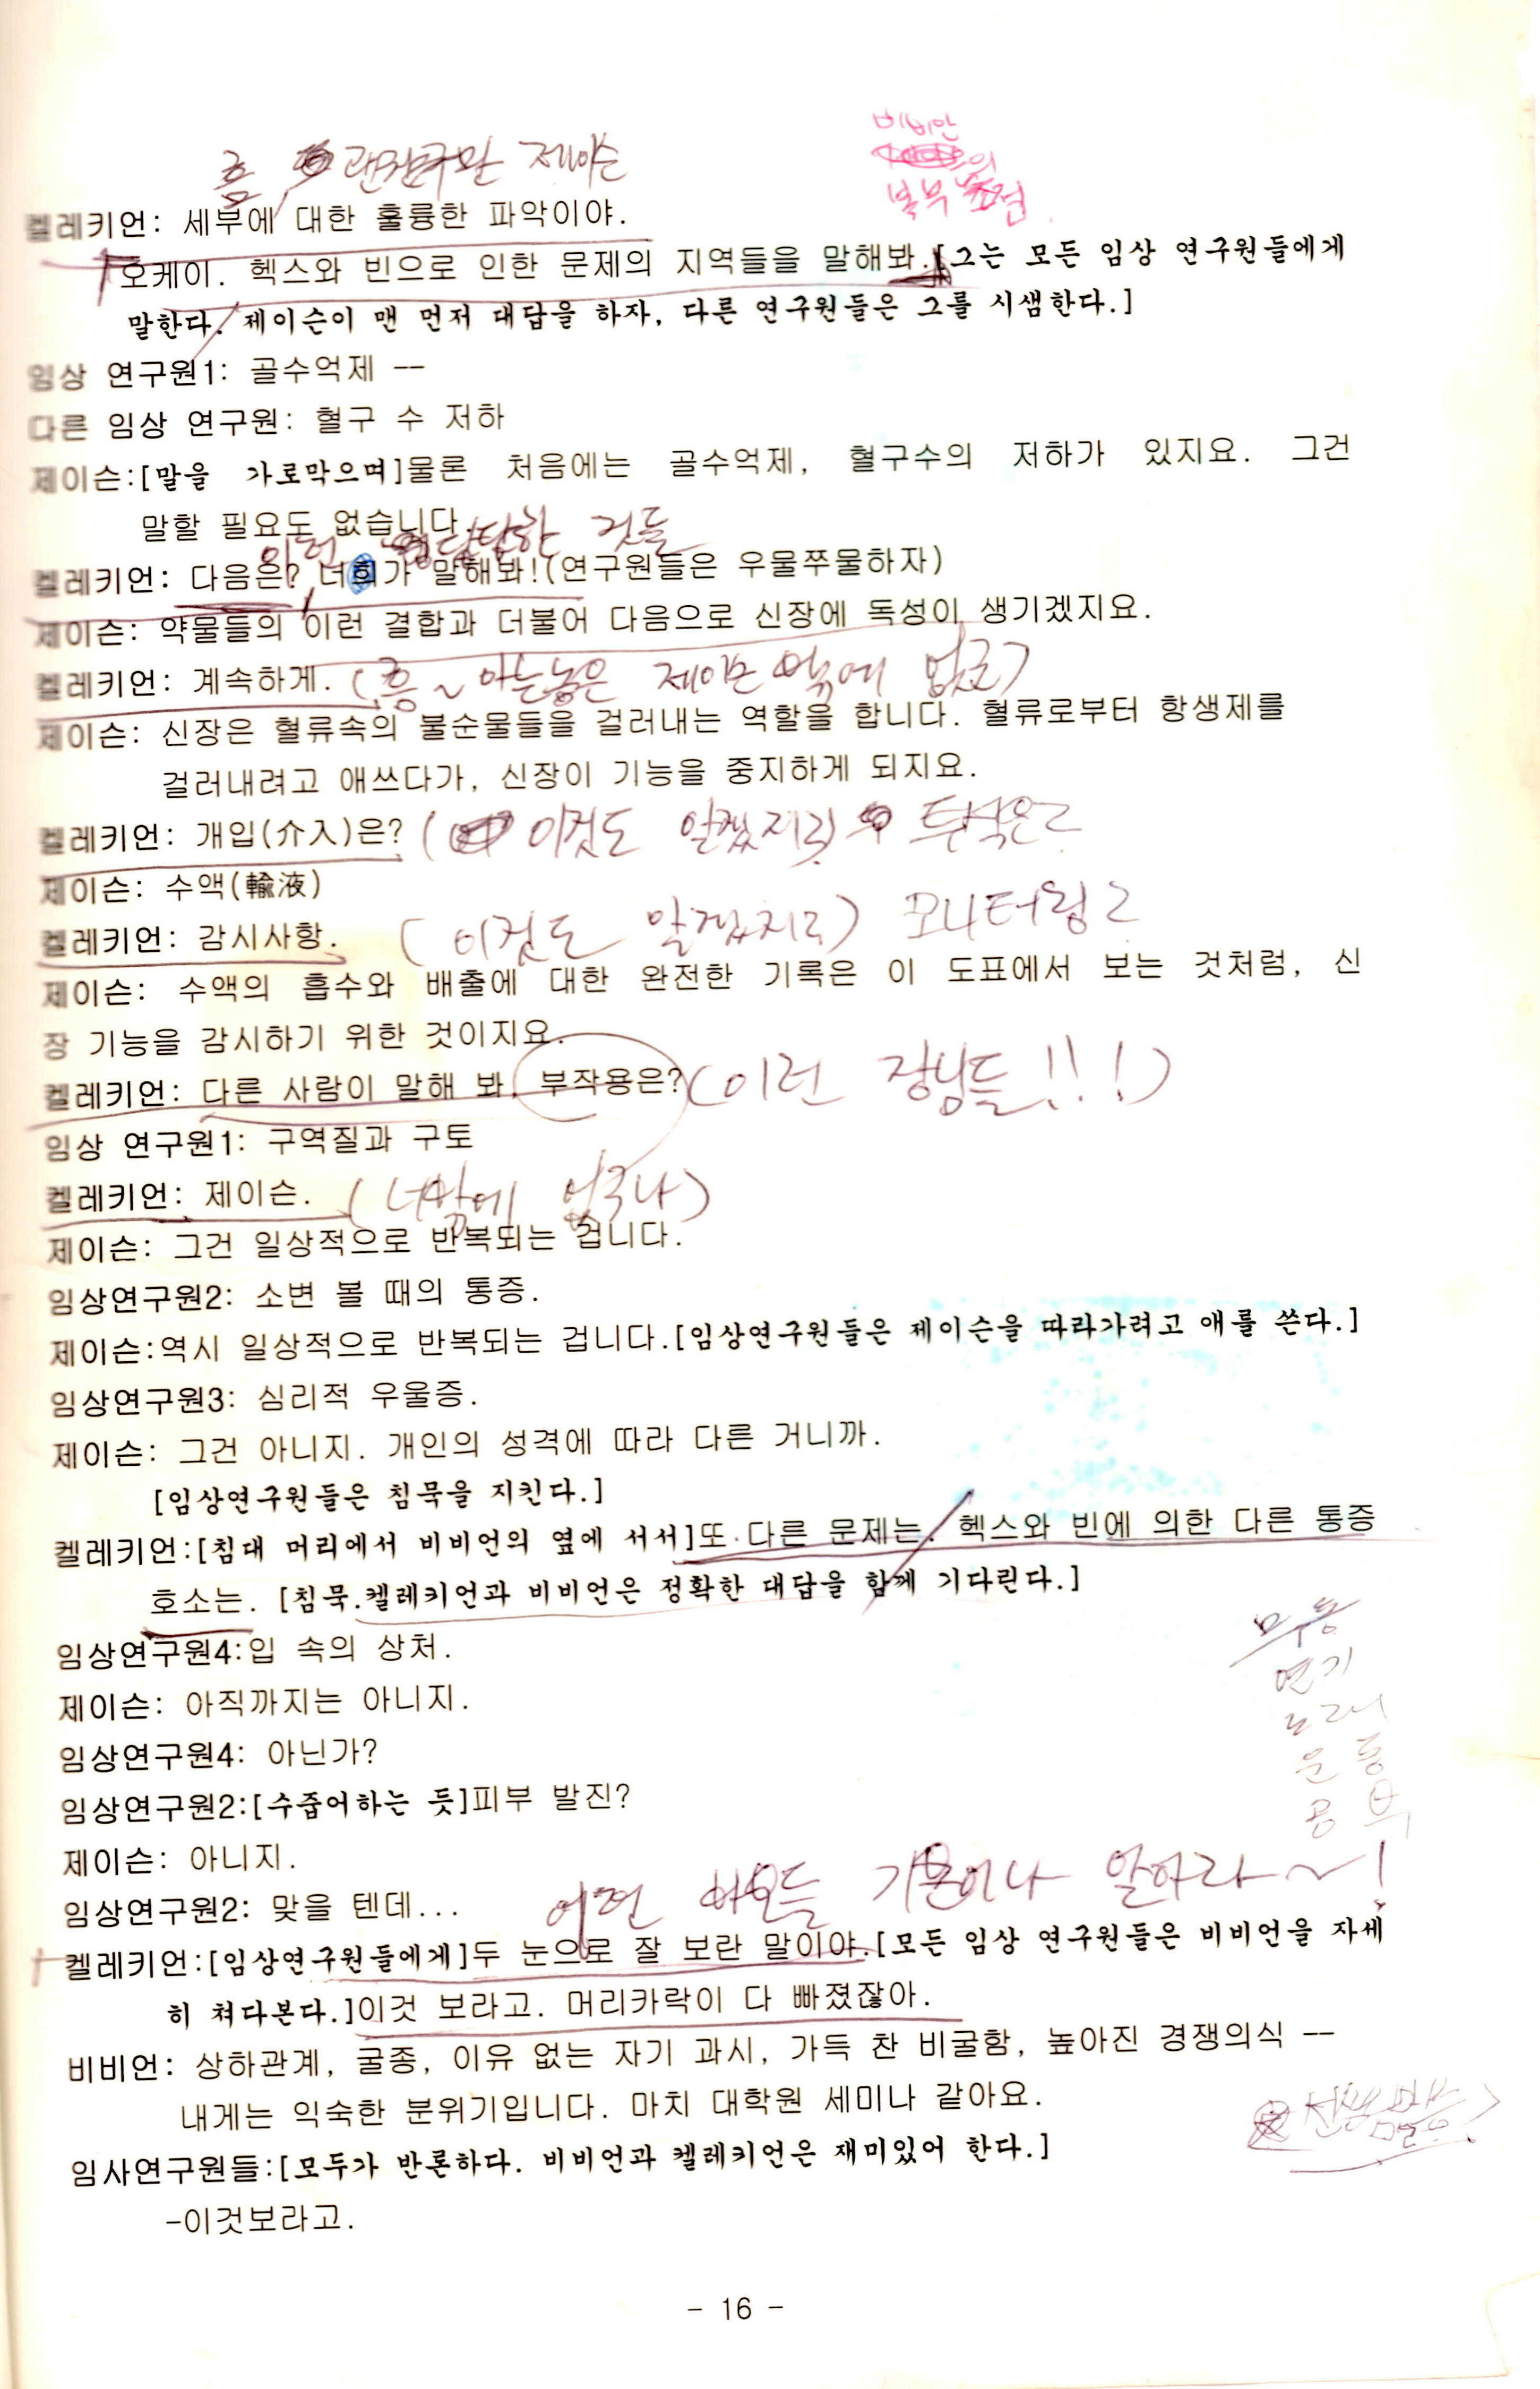 흠 괜찮구만 제이슨
비비안
의
복부
켈레키언: 세부에 대한 훌륭한 파악이야.
오케이. 헥스와 빈으로 인한 문제의 지역들을 말해봐.[그는 모든 임상 연구원들에게
말한다. 제이슨이 맨 먼저 대답을 하자, 다른 연구원들은 그를 시샘한다.]
임상 연구원1: 골수억제 --
다른 임상 연구원: 혈구 수 저하
제이슨:[말을 가로막으며]물론 처음에는 골수억제, 혈구수의 저하가 있지요. 그건
말할 필요도 없습니다.
이런 답답한 것들
켈레키언: 다음은? 너희가 말해봐!(연구원들은 우물쭈물하자)
제이슨: 약물들의 이런 결합과 더불어 다음으로 신장에 독성이 생기겠지요.
켈레키언: 계속하게. (흠~ 아는놈은 제이슨 밖에 없군)
제이슨: 신장은 혈류속의 불순물들을 걸러내는 역할을 합니다. 혈류로부터 항생제를
걸러내려고 애쓰다가, 신장이 기능을 중지하게 되지요.
켈레키언: 개입(介入)은? (이것도 알겠지?) 투석은?
제이슨: 수액(輸液)
켈레키언: 감시사항. (이것도 알겠지?) 모니터링?
제이슨: 수액의 흡수와 배출에 대한 완전한 기록은 이 도표에서 보는 것처럼, 신
장 기능을 감시하기 위한 것이지요.
켈레키언: 다른 사람이 말해 봐. 부작용은? (이런 장님들!!!)
임상 연구원1: 구역질과 구토
켈레키언: 제이슨. (너밖에 없구나)
제이슨: 그건 일상적으로 반복되는 겁니다.
임상연구원2: 소변 볼 때의 통증.
제이슨:역시 일상적으로 반복되는 겁니다.[임상연구원들은 제이슨을 따라가려고 애를 쓴다.]
임상연구원3: 심리적 우울증.
제이슨: 그건 아니지. 개인의 성격에 따라 다른 거니까.
[임상연구원들은 침묵을 지킨다.]
켈레키언:[침대 머리에서 비비언의 옆에 서서]또 다른 문제는. 헥스와 빈에 의한 다른 통증
호소는. [침묵.켈레키언과 비비언은 정확한 대답을 함께 기다린다.]
임상연구원4:입 속의 상처.
제이슨: 아직까지는 아니지.
임상연구원4: 아닌가?
임상연구원2:[수줍어하는 듯]피부 발진?
제이슨: 아니지.
무용
연기
노래
운동
공부
임상연구원2: 맞을 텐데...
기본이나 알아라~!
켈레키언:[임상연구원들에게]두 눈으로 잘 보란 말이야.[모든 임상 연구원들은 비비언을 자세
히 쳐다본다.]이것 보라고. 머리카락이 다 빠졌잖아.
비비언: 상하관계, 굴종, 이유 없는 자기 과시, 가득 찬 비굴함, 높아진 경쟁의식 --
내게는 익숙한 분위기입니다. 마치 대학원 세미나 같아요.
임사연구원들:[모두가 반론하다. 비비언과 켈레키언은 재미있어 한다.]
-이것보라고.
- 16 -